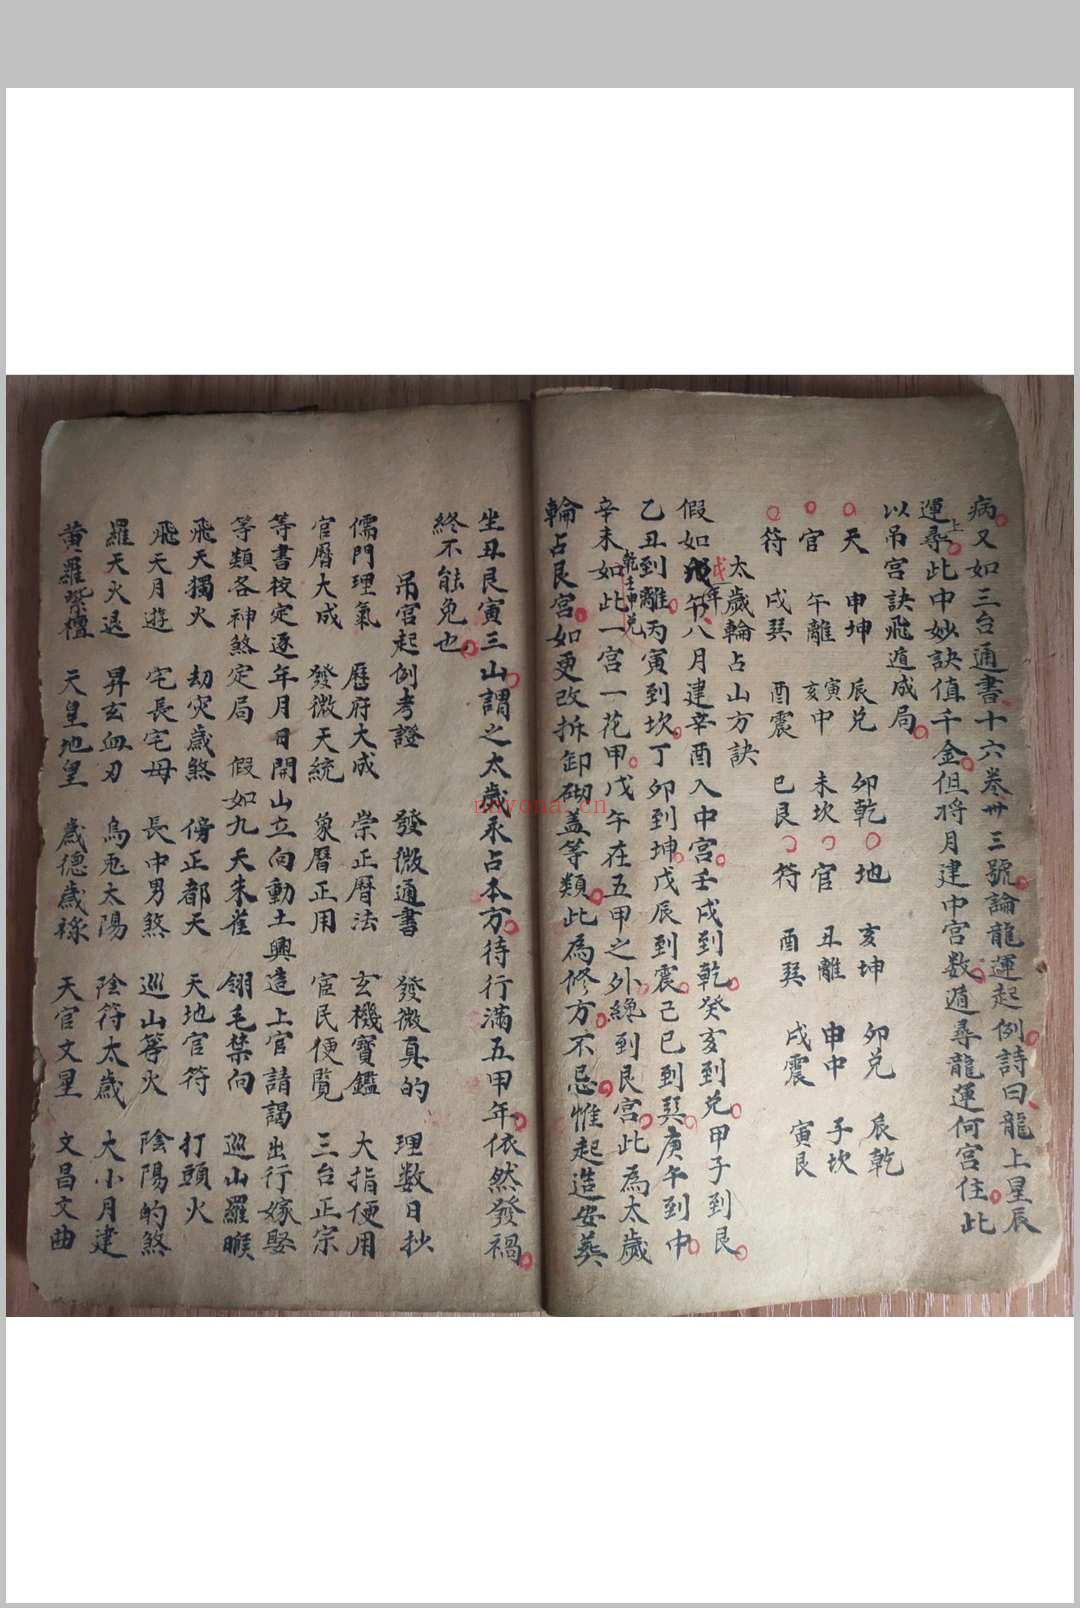 病又如三台通書十六卷卅三號論龍運起例詩曰龍上星辰
運上尋此中妙訣值千金但將月建中宮数遁尋龍運何宮住此
以吊宮訣飛遁成局
天 申坤 辰兌 卯乾 地 亥坤 卯兌 辰乾
官 午離 亥寅中 未坎 官 丑離 申中 子坎
符 戌巽 酉震 巳艮 符 酉巽 戌震 寅艮
太歲輪占山方訣
假如戊午年八月建辛酉入中宮壬戌到乾癸亥到兌甲子到艮
乙丑到離丙寅到坎丁卯到坤戊辰到震己巳到巽庚午到中
辛未乾壬申兌如此一宮一花甲戊午在五甲之外總到艮宮此為太歲
輪占艮宮如更改拆卸砌蓋等類此為修方不忌惟起造安葬
坐丑艮寅三山謂之太歲永占本方待行滿五甲年依然發禍
終不能免也
吊宮起例考證 發微通書 發微真的 理数日抄
儒門理氣 曆府大成 崇正曆法 玄機寶鑑 大指便用
官曆大成 發微天統 象曆正用 宦民便覧 三台正宗
等書校定逐年月日開山立向動土興造上官請謁出行嫁娶
等類各神煞定局 假如九天朱雀 翎毛禁向 巡山羅睺
飛天獨火 劫灾歲煞 傍正都天 天地官符 打頭火
飛天月遊 宅長宅母 長中男煞 巡山等火 陰陽的煞
羅天火退 昇玄血刃 烏兎太陽 陰符太歲 大小月建
黄羅紫檀 天皇地皇 歲德歲祿 天官文星 文昌文曲
noyona.cn